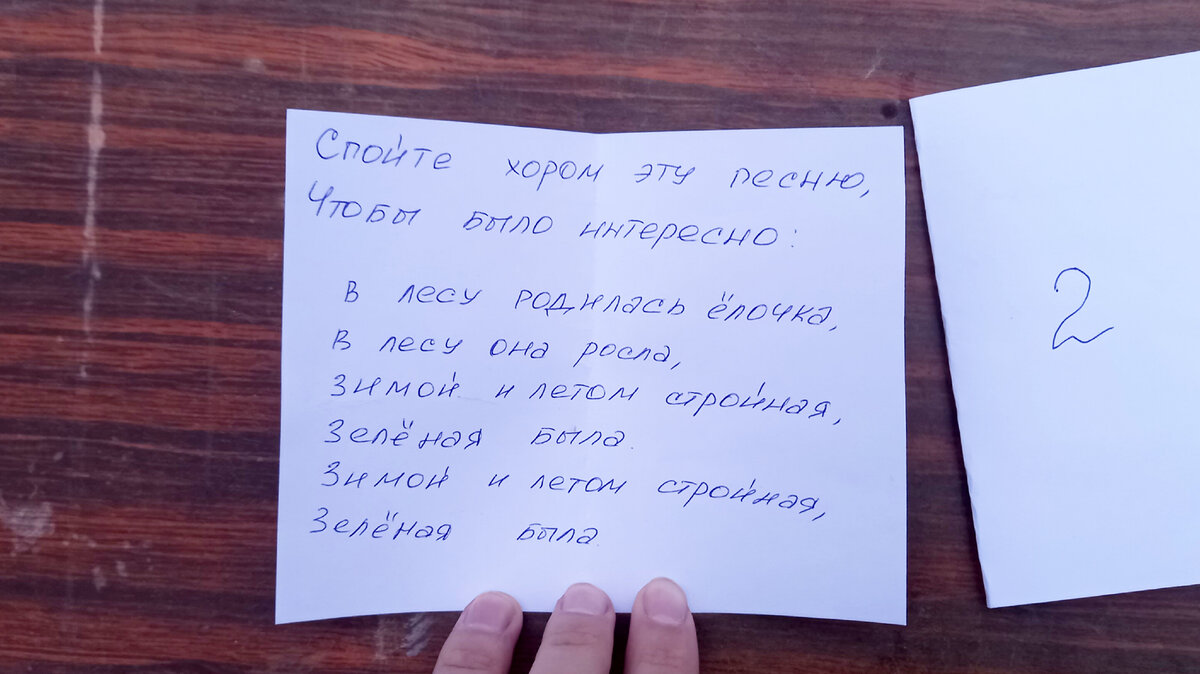 Спойте хором эту песню,
Чтобы было интересно:
В лесу родилась ёлочка,
В лесу она росла,
Зимой и летом стройная,
Зелёная была.
Зимой и летом стройная,
Зелёная была.
2